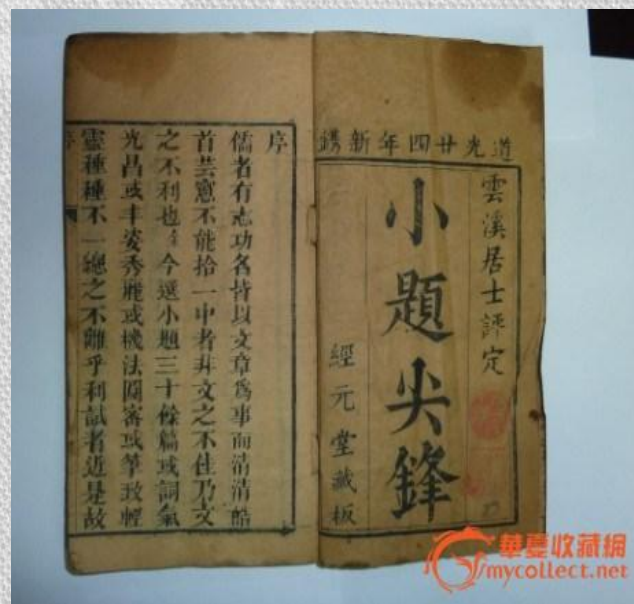 道光廿四年新鐫
雲溪居士評定
小題尖鋒
經元堂藏板
序
儒者有志功名皆以文章為事而清清皓
首芸窻不能拾一中者非文之不佳乃文
之不利也今選小題三十餘篇或詞氣
光昌或丰姿秀麗或機法圓密或筆致輕
靈種種不一總之不離乎利試者近是故
序
華夏收藏網
mycollect.net